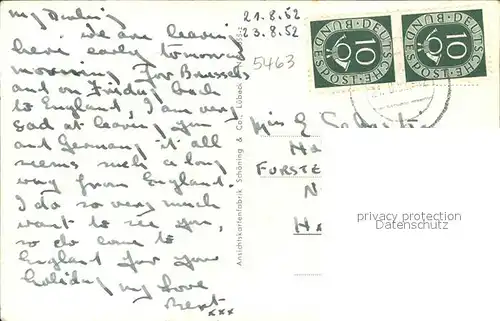 my Darling
we are leaving
here early tomorrow
morning. For Brussels
and on Friday back
to England, I am very
sad at leaving you
and Germany it all
seems such a long
way from England.
I do so very much
want to see you,
so do come to
England for your
holiday my love
Bert xxx
21.8.52
23.8.52
5463
Ansichtskartenfabrik Schöning & Co., Lübeck
DEUTSCHE BUNDESPOST 10
DEUTSCHE BUNDESPOST 10
Miss E
Ha
FURSTE
N
Ha
privacy protection
Datenschutz